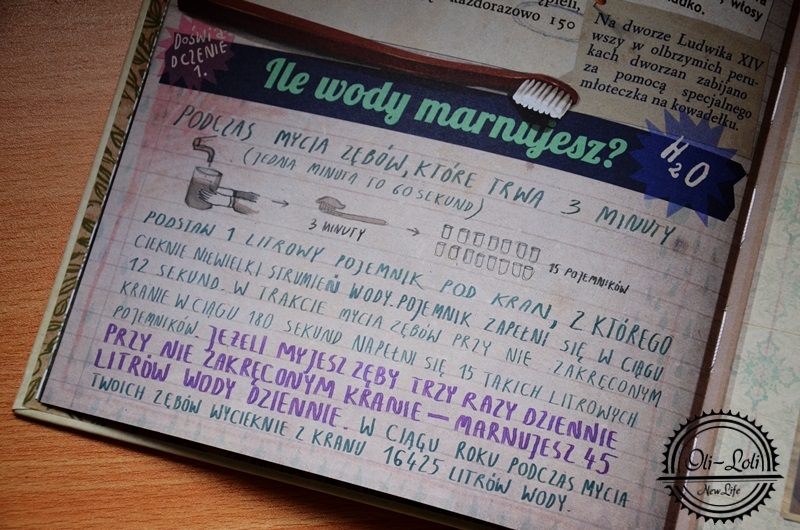 każdorazowo 150
włosy
Na dworze Ludwika XIV
wszy w olbrzymich peru-
kach dworzan zabijano
za pomocą specjalnego
młoteczka na kowadełku.
DOŚWIA
DCZENIE
1.
Ile wody marnujesz?
H2O
PODCZAS MYCIA ZĘBÓW, KTÓRE TRWA 3 MINUTY
(JEDNA MINUTA TO 60 SEKUND)
3 MINUTY
15 POJEMNIKÓW
PODSTAW 1 LITROWY POJEMNIK POD KRAN, Z KTÓREGO
CIEKNIE NIEWIELKI STRUMIEŃ WODY. POJEMNIK ZAPEŁNI SIĘ W CIĄGU
12 SEKUND. W TRAKCIE MYCIA ZĘBÓW PRZY NIE ZAKRĘCONYM
KRANIE W CIĄGU 180 SEKUND NAPEŁNI SIĘ 15 TAKICH LITROWYCH
POJEMNIKÓW. JEŻELI MYJESZ ZĘBY TRZY RAZY DZIENNIE
PRZY NIE ZAKRĘCONYM KRANIE – MARNUJESZ 45
LITRÓW WODY DZIENNIE. W CIĄGU ROKU PODCZAS MYCIA
TWOICH ZĘBÓW WYCIEKNIE Z KRANU 16425 LITRÓW WODY.
Oli-Loli
New Life